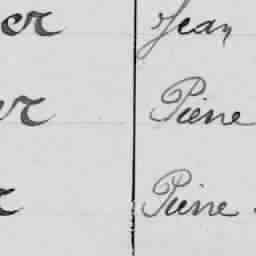 er Jean
er Pierre
r Pierre